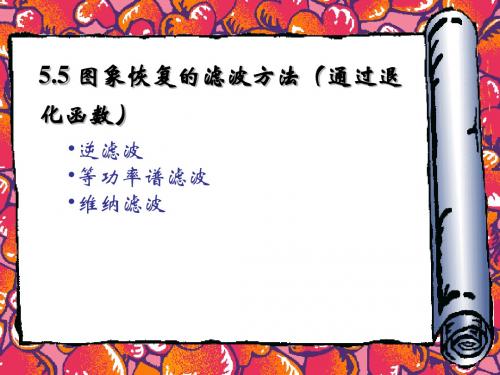 5.5 图象恢复的滤波方法（通过退
化函数）
•逆滤波
•等功率谱滤波
•维纳滤波